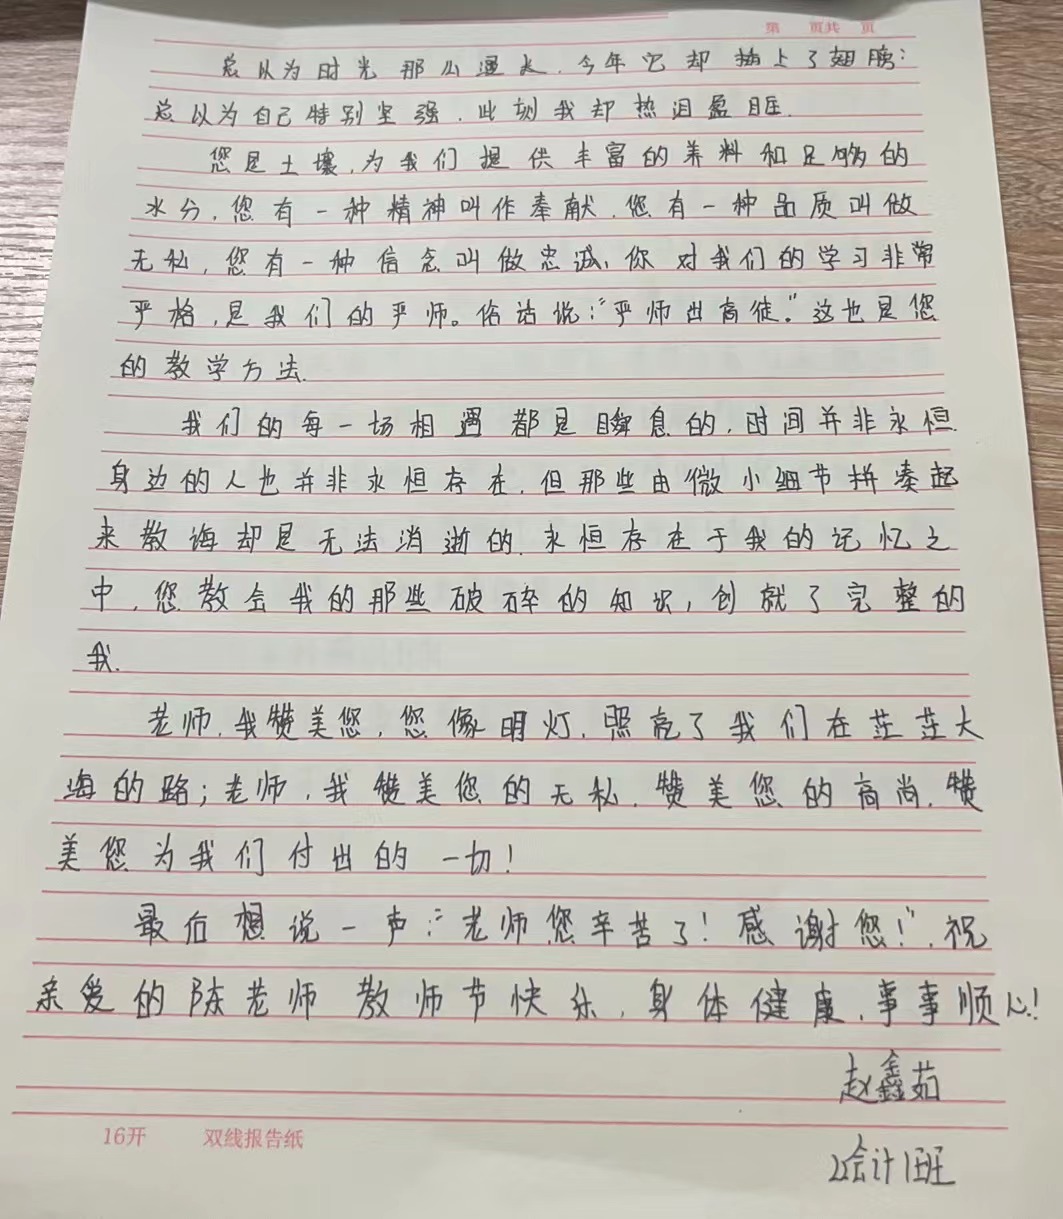 第 页共 页
总以为时光那么漫长,今年它却插上了翅膀:
总以为自己特别坚强,此刻我却热泪盈眶.
您是土壤,为我们提供丰富的养料和足够的
水分,您有一种精神叫作奉献,您有一种品质叫做
无私,您有一种信念叫做忠诚,你对我们的学习非常
严格,是我们的严师。俗话说:“严师出高徒。”这也是您
的教学方法.
我们的每一场相遇都是瞬息的,时间并非永恒.
身边的人也并非永恒存在,但那些由微小细节拼凑起
来教诲却是无法消逝的,永恒存在于我的记忆之
中,您教会我的那些破碎的知识,创就了完整的
我.
老师,我赞美您,您像明灯,照亮了我们在茫茫大
海的路;老师,我赞美您的无私,赞美您的高尚,赞
美您为我们付出的一切!
最后想说一声:“老师您辛苦了!感谢您!”,祝
亲爱的陈老师教师节快乐,身体健康,事事顺心!
赵鑫茹
22会计1班
16开 双线报告纸